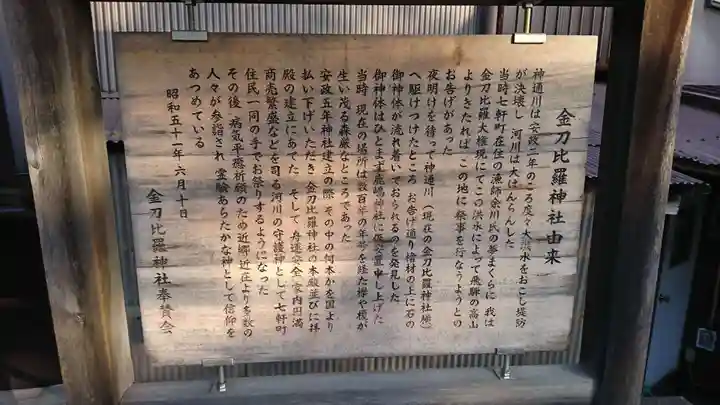 金刀比羅神社由来
神通川は 安政二年のころ度々大洪水をおこし堤防
が決壊し 河川は大はんらんした
当時七軒町在住の漁師余川氏の夢まくらに 我は
金刀比羅大権現にてこの洪水によって飛騨の高山
よりきたれば この地に祭事を行なうようとの
お告げがあった
夜明けを待って神通川(現在の金刀比羅神社
へ駆けつけたところ お告げ通り桧材の上に石の
御神体が流れ着いておられるのを発見した
御神体はひとまず嚴嶋神社に仮安置申し上げた
当時 現在の場所は数百年の年歩を経た欅や榎が
生い茂る森厳なところであった
安政五年神社建立の際 その中の何本かを国より
払い下げいただき 金刀比羅神社の本殿並びに拝
殿の建立にあてた そして 舟運安全 家内円満
商売繁盛などを司る河川の守護神として七軒町
住民一同の手でお祭りするようになった
その後 病気平癒祈願のため近郷近在より多数の
人々が参詣され 霊験あらたかな神として信仰を
あつめている
昭和五十一年六月十日
金刀比羅神社奉賛会